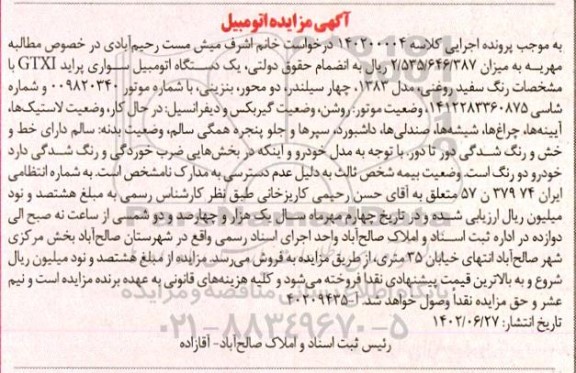 آگهی مزایده اتومبیل
به موجب پرونده اجرایی کلاسه ۱۴۰۲۰۰۰۰۴ درخواست خانم اشرف میش مست رحیم‌آبادی در خصوص مطالبه
مهریه به میزان ۲/۵۳۵/۶۴۶/۳۸۷ ریال به انضمام حقوق دولتی، یک دستگاه اتومبیل سواری پراید GTXI با
مشخصات رنگ سفید روغنی، مدل ۱۳۸۳، چهار سیلندر، دو محور، بنزینی، با شماره موتور ۰۰۹۸۲۳۴۰ و شماره
شاسی ۱۴۱۲۲۸۳۳۶۰۸۷۵، وضعیت موتور: روشن، وضعیت گیربکس و دیفرانسیل: در حال کار، وضعیت لاستیک‌ها،
آیینه‌ها، چراغ‌ها، شیشه‌ها، صندلی‌ها، داشبورد، سپرها و جلو پنجره همگی سالم، وضعیت بدنه: سالم دارای خط و
خش و رنگ شدگی دور تا دور، با توجه به مدل خودرو و اینکه در بخش‌هایی ضرب خوردگی و رنگ شدگی دارد
خودرو دو رنگ است. وضعیت بیمه شخص ثالث به دلیل عدم دسترسی به مدارک نامشخص است. به شماره انتظامی
ایران ۷۴ ۳۷۹ ن ۵۷ متعلق به آقای حسن رحیمی کاریزخانی طبق نظر کارشناس رسمی به مبلغ هشتصد و نود
میلیون ریال ارزیابی شده و در تاریخ چهارم مهرماه سال یک هزار و چهارصد و دو شمسی از ساعت نه صبح الی
دوازده در اداره ثبت اسناد و املاک صالح‌آباد واحد اجرای اسناد رسمی واقع در شهرستان صالح‌آباد بخش مرکزی
شهر صالح‌آباد انتهای خیابان ۳۵ متری، از طریق مزایده به فروش می‌رسد. مزایده از مبلغ هشتصد و نود میلیون ریال
شروع و به بالاترین قیمت پیشنهادی نقدا فروخته می‌شود و کلیه هزینه‌های قانونی به عهده برنده مزایده است و نیم
عشر و حق مزایده نقداً وصول خواهد شد. ۴۰۲۰۹۴۳۵
تاریخ انتشار: ۱۴۰۲/۰۶/۲۷
رئیس ثبت اسناد و املاک صالح‌آباد- آقازاده
۰۲۱-۸۸۳۴۹۶۷۰-۵